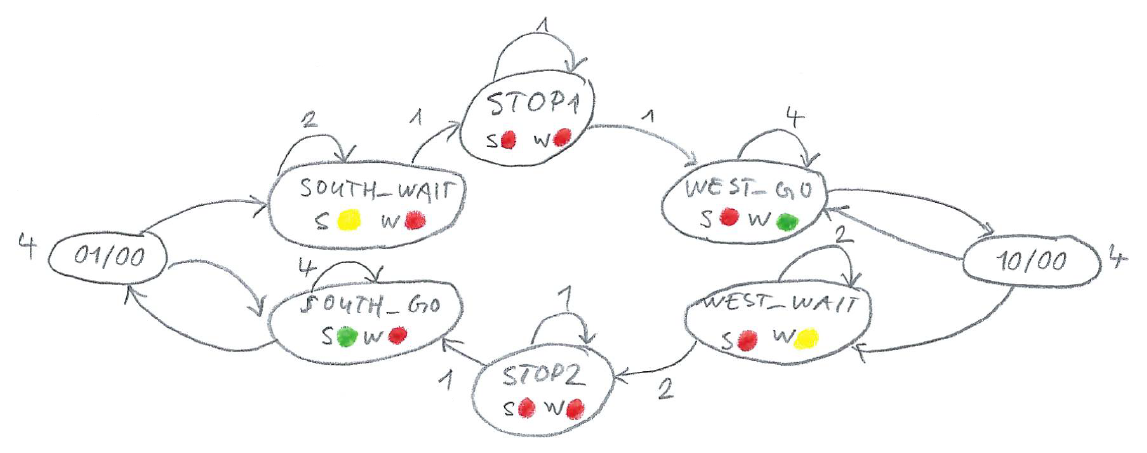 1
STOP1
S W
2
1
1
4
SOUTH_WAIT
S W
WEST_GO
S W
4
01/00
10/00
4
2
4
SOUTH_GO
S W
WEST_WAIT
S W
1
STOP2
S W
1
2